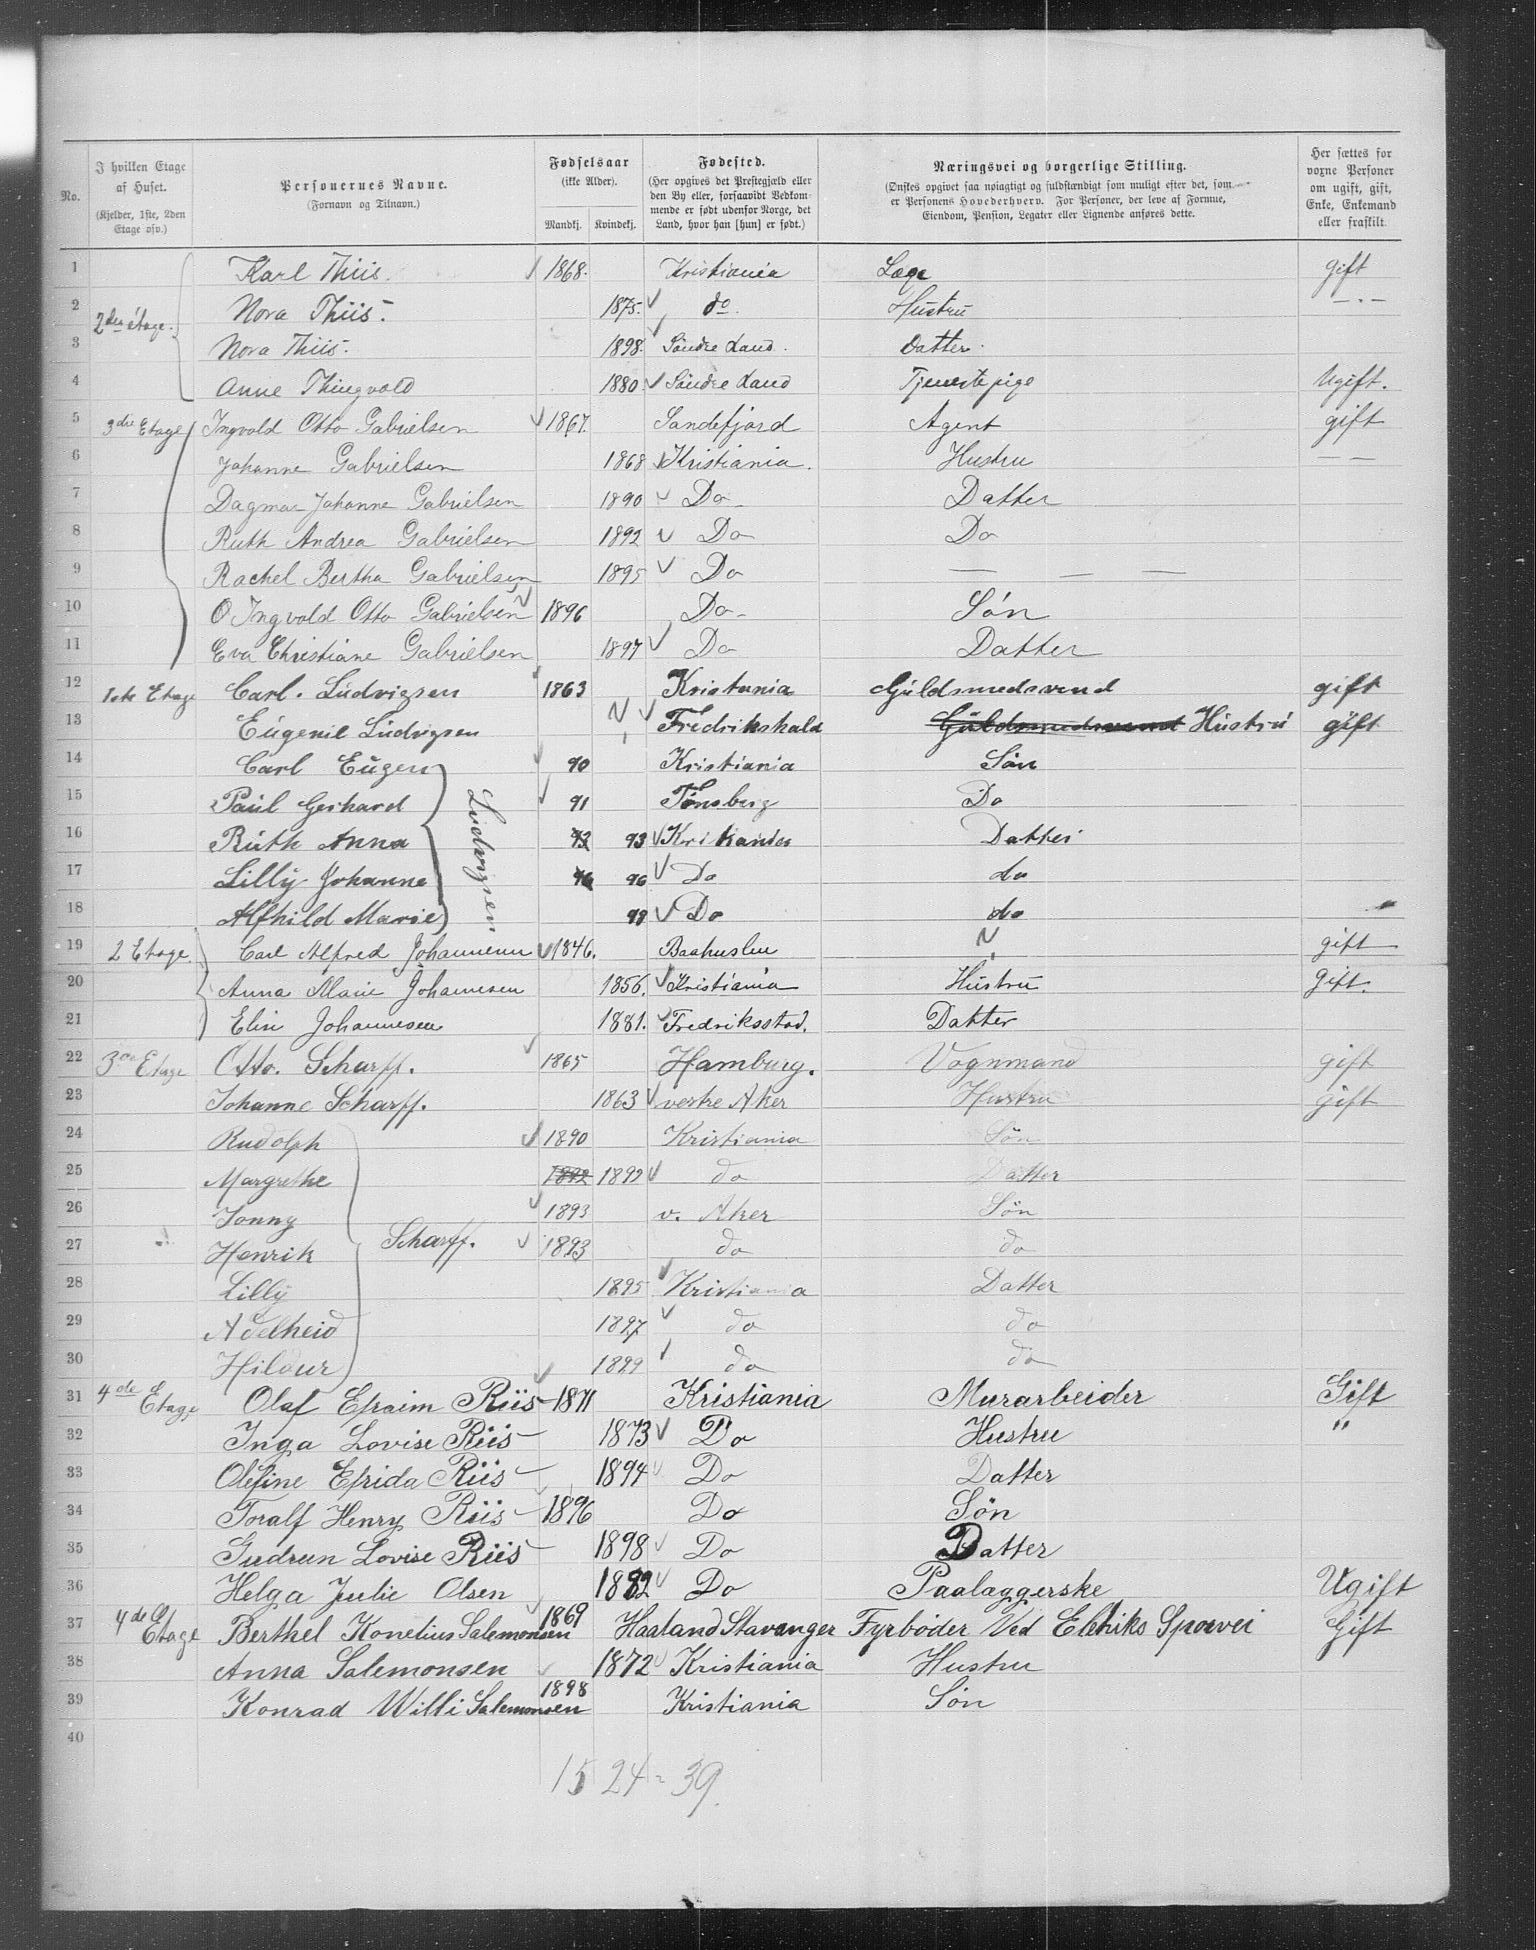 No.
I hvilken Etage af Huset. (Kjelder, 1ste, 2den Etage osv.)
Personernes Navne. (Fornavn og Tilnavn.)
Fødselsaar (ikke Alder). Mandkj. Kvindekj.
Fødested. (Her opgives det Prestegjæld eller den By eller, forsaavidt Vedkommende er født udenfor Norge, det Land, hvor han [hun] er født.)
Næringsvei og borgerlige Stilling. (Ønskes opgivet saa nøiagtigt og fuldstændigt som muligt efter det, som er Personens Hovederhverv. For Personer, der leve af Formue, Eiendom, Pension, Legater eller Lignende anføres dette.)
Her sættes for voxne Personer om ugift, gift, Enke, Enkemand eller fraskilt.
1 Karl Thiis. 1868. Kristiania Læge gift
2 2den étage. Nora Thiis. 1875. do. Hustru — . —
3 Nora Thiis. 1898. Søndre Land. Datter.
4 Anne Thingvold 1880 Søndre Land Tjenestepige Ugift.
5 3die Etage Ingvold Otto Gabrielsen 1867. Sandefjord Agent gift
6 Johanne Gabrielsen 1868 Kristiania. Hustru — —
7 Dagmar Johanne Gabrielsen 1890 Do Datter
8 Ruth Andrea Gabrielsen 1892 Do Do
9 Rachel Bertha Gabrielsen 1895 Do — — —
10 O Ingvold Otto Gabrielsen 1896 Do Søn
11 Eva Christiane Gabrielsen 1897 Do Datter
12 1ste Etage Carl. Ludvigsen 1863 Kristania Guldsmedsvend gift
13 Eugenie Ludvigsen Fredrikshald Guldsmedsvend Hustru gift
14 Carl Eugen 90 Kristiania Søn
15 Paul Gerhard 91 Tønsberg Do
16 Ruth Anna 93 93 Kristiania Datter
17 Lilly Johanne 96 96 Do do
18 Alfhild Marie 98 Do do
Ludvigsen
19 2 Etage. Carl Alfred Johannesen 1846. Baahuslen gift
20 Anna Marie Johannesen 1856. Kristiania Hustru gift.
21 Elin Johannesen 1881. Fredriksstad. Datter
22 3die Etage Otto. Scharff. 1865 Hamburg. Vognmand gift
23 Johanne Scharff. 1863 vestre Aker Hustru gift
24 Rudolph 1890 Kristiania Søn
25 Margrethe 1892 1892 do Datter
26 Jonny 1893 v. Aker Søn
27 Henrik Scharff. 1893 do do
28 Lilly 1895 Kristiania Datter
29 Adelheid 1897 do do
30 Hildur 1899 do do
31 4de Etage Olaf Efraim Riis 1871 Kristiania Murarbeider Gift
32 Inga Lovise Riis 1873 Do Hustru "
33 Olefine Efrida Riis 1894 Do Datter
34 Toralf Henry Riis 1896 Do Søn
35 Gudrun Lovise Riis 1898 Do Datter
36 Helga Julie Olsen 1882 Do Paalæggerske Ugift
37 4de Etage Berthel Konelius Salemonsen 1869 Haaland Stavanger Fyrbøder Ved Elctriks Sporvei Gift
38 Anna Salemonsen 1872 Kristiania Hustru
39 Konrad Willi Salemonsen 1898 Kristiania Søn
40
15 24 = 39.